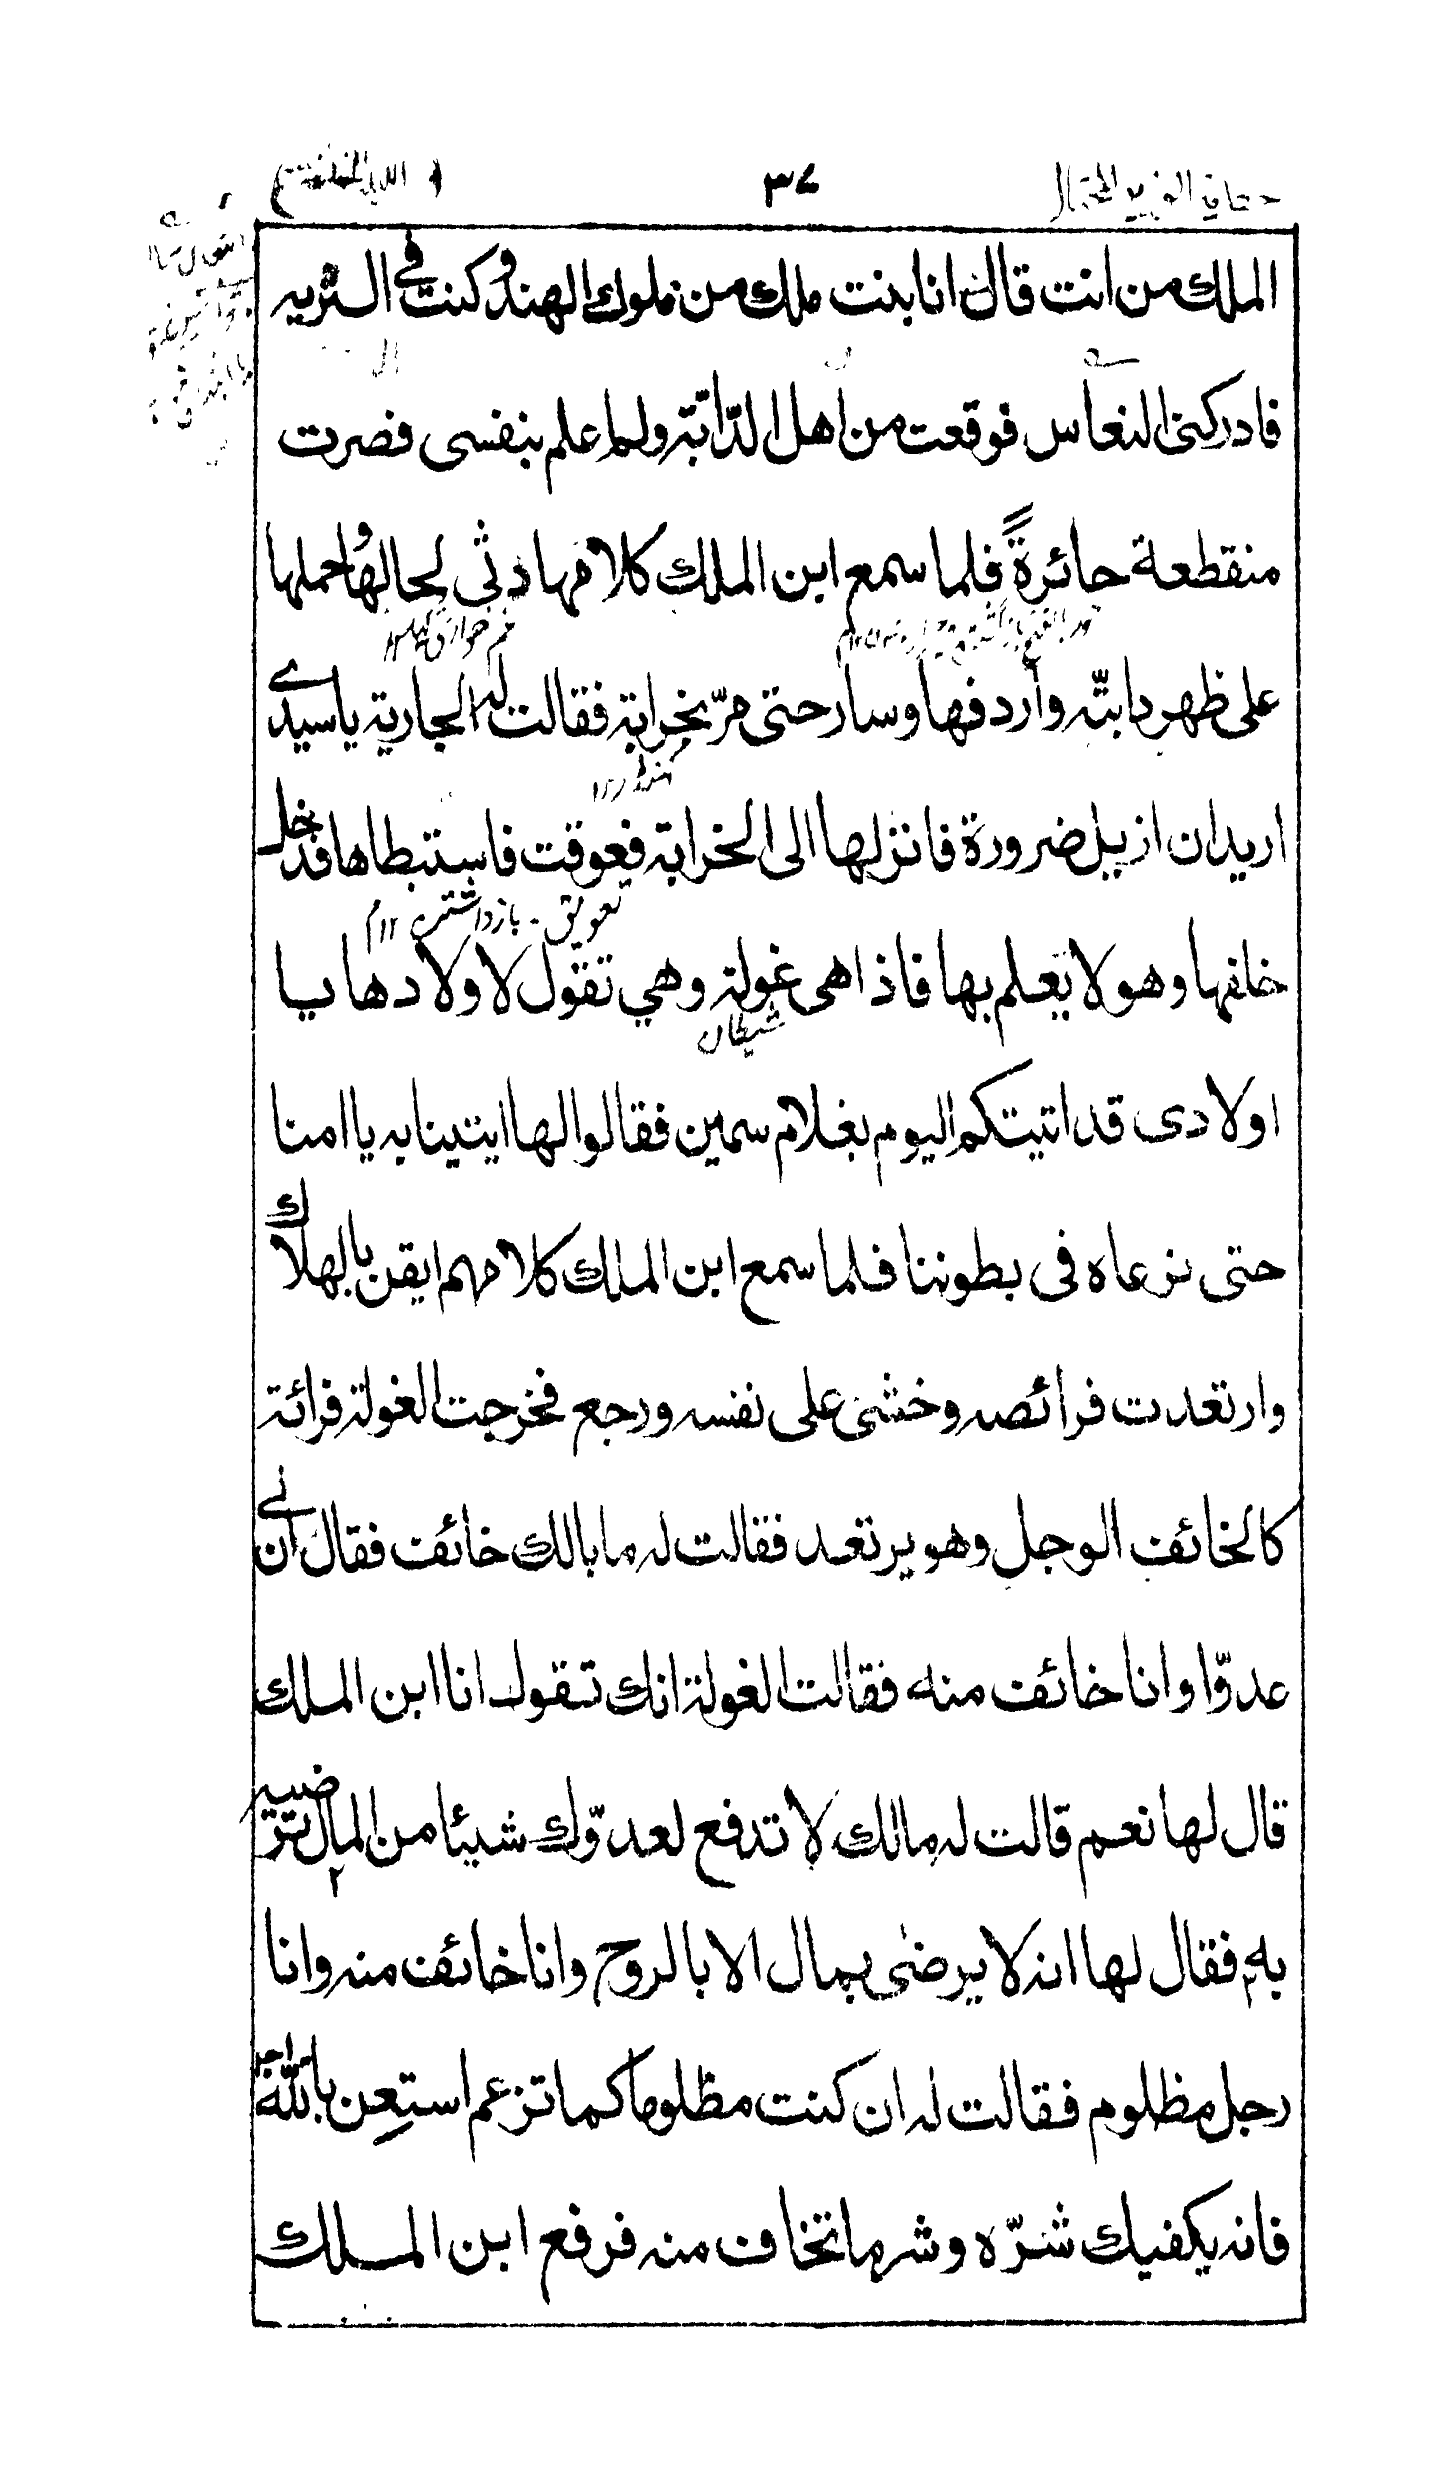 ٣٧
الملك من انت قال انا بنت ملك من ملوك الهند وكنت في البريه
فادركنى النعاس فوقعت من اهل الدّابّة ولم اعلم بنفسى فصرت
منقطعة حائرةً فلما سمع ابن الملك كلامها رثى لحالها وحملها
على ظهر دابتّه واردفها وسار حتى مرّ بخرابة فقالت له الجارية يا سيدى
اريد ان ازيل ضرورة فانزلها الى الخرابة فعوقت فاستبطاها فدخل
تعويق - بازداشتن ١٢ م
خلفها وهو لا يعلم بها فاذا هى غولة وهي تقول لاولادها يا
شيطان
اولادى قد اتيتكم اليوم بغلام سمين فقالوا لها ايتينا به يا امنا
حتى نرعاه فى بطوننا فلما سمع ابن الملك كلامهم ايقن بالهلاك
وارتعدت فرائصه وخشى على نفسه ورجع فخرجت الغولة فرائة
كالخائف الوجل وهو يرتعد فقالت له ما بالك خائف فقال ان لى
عدوّا وانا خائف منه فقالت الغولة انك تقول انا ابن الملك
قال لها نعم قالت له مالك لا تدفع لعدوّك شيئا من المال ترضيه
به فقال لها انه لا يرضى بمال الا بالروح وانا خائف منه وانا
رجل مظلوم فقالت له ان كنت مظلوما كما تزعم استعِن بالله
فانه يكفيك شرّه وشر ما تخاف منه فرفع ابن الملك